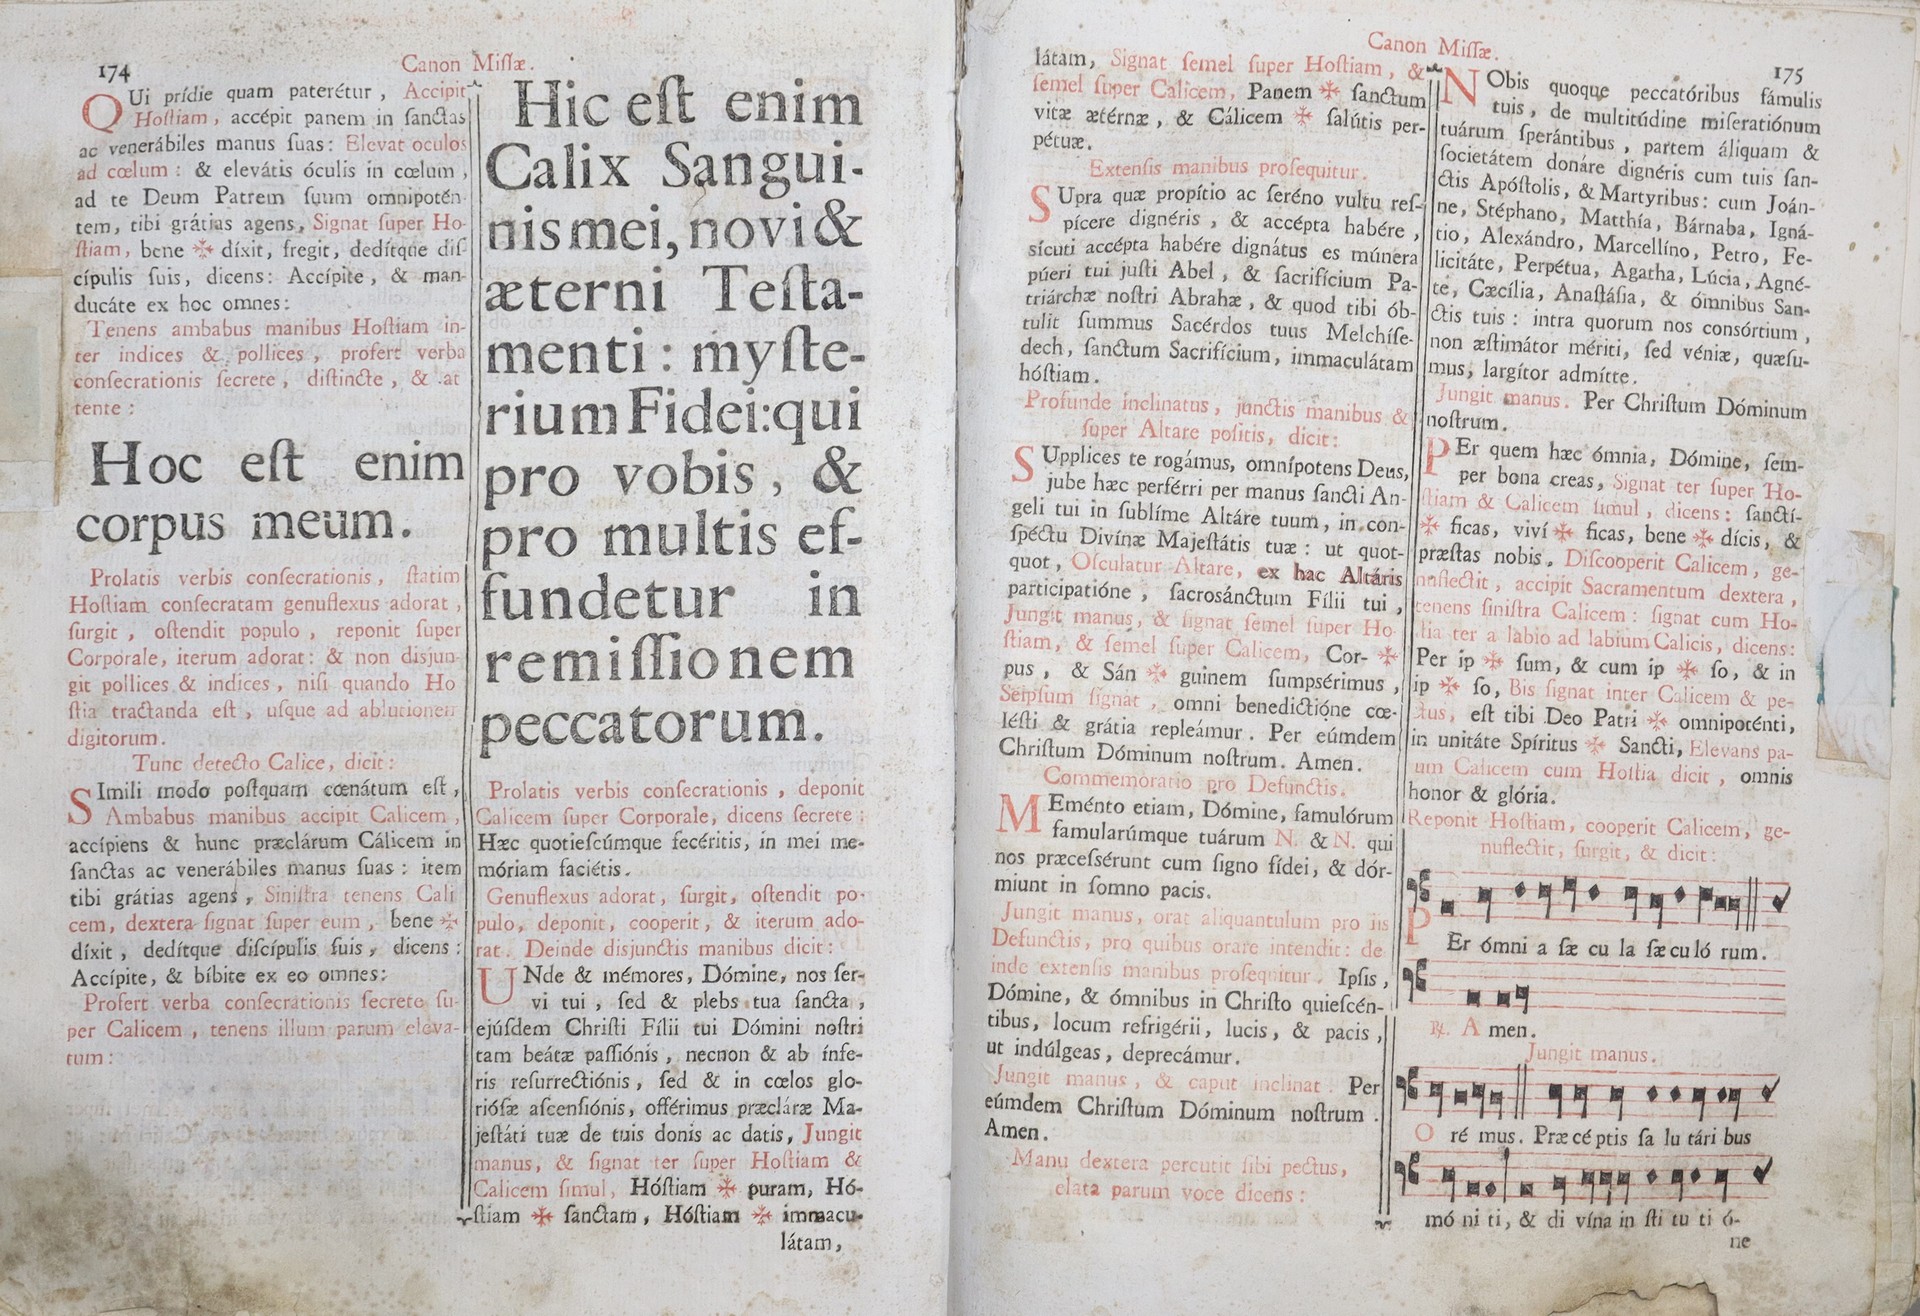 174
Canon Miſſæ.
QUi prídie quam paterétur, Accipit
Hoſtiam, accépit panem in ſanctas
ac venerábiles manus ſuas: Elevat oculos
ad cœlum: & elevátis óculis in cœlum,
ad te Deum Patrem ſuum omnipotén-
tem, tibi grátias agens, Signat ſuper Ho-
ſtiam, bene ✠ díxit, fregit, dedítque diſ-
cípulis ſuis, dicens: Accípite, & man-
ducáte ex hoc omnes:
Tenens ambabus manibus Hoſtiam in-
ter indices & pollices, profert verba
conſecrationis ſecrete, diſtincte, & at
tente:
Hoc eſt enim
corpus meum.
Prolatis verbis conſecrationis, ſtatim
Hoſtiam conſecratam genuflexus adorat,
ſurgit, oſtendit populo, reponit ſuper
Corporale, iterum adorat: & non disjun-
git pollices & indices, niſi quando Ho
ſtia tractanda eſt, uſque ad ablutionem
digitorum.
Tunc detecto Calice, dicit:
SImili modo poſtquam cœnátum eſt,
Ambabus manibus accipit Calicem,
accípiens & hunc præclárum Cálicem in
ſanctas ac venerábiles manus ſuas: item
tibi grátias agens, Siniſtra tenens Cali
cem, dextera ſignat ſuper eum, bene ✠
díxit, dedítque diſcípulis ſuis, dicens:
Accípite, & bíbite ex eo omnes:
Profert verba conſecrationis ſecrete ſu-
per Calicem, tenens illum parum eleva-
tum:
Hic eſt enim
Calix Sangui-
nis mei, novi &
æterni Teſta-
menti: myſte-
rium Fidei: qui
pro vobis, &
pro multis ef-
fundetur in
remiſſionem
peccatorum.
Prolatis verbis conſecrationis, deponit
Calicem ſuper Corporale, dicens ſecrete:
Hæc quotieſcúmque fecéritis, in mei me-
móriam faciétis.
Genuflexus adorat, ſurgit, oſtendit po-
pulo, deponit, cooperit, & iterum ado-
rat. Deinde disjunctis manibus dicit:
UNde & mémores, Dómine, nos ſer-
vi tui, ſed & plebs tua ſancta,
ejúſdem Chriſti Fílii tui Dómini noſtri
tam beátæ paſſiónis, necnon & ab ínfe-
ris reſurrectiónis, ſed & in cœlos glo-
rióſæ aſcenſiónis, offérimus præcláræ Ma-
jeſtáti tuæ de tuis donis ac datis, Jungit
manus, & ſignat ter ſuper Hoſtiam &
Calicem ſimul, Hóſtiam ✠ puram, Hó-
ſtiam ✠ ſanctam, Hóſtiam ✠ immacu-
látam,
Canon Miſſæ.
175
látam, Signat ſemel ſuper Hoſtiam, &
ſemel ſuper Calicem, Panem ✠ ſanctum
vitæ ætérnæ, & Cálicem ✠ ſalútis per-
pétuæ.
Extenſis manibus proſequitur.
SUpra quæ propítio ac ſeréno vultu reſ-
pícere dignéris, & accépta habére,
sícuti accépta habére dignátus es múnera
púeri tui juſti Abel, & ſacrifícium Pa-
triárchæ noſtri Abrahæ, & quod tibi ób-
tulit ſummus Sacérdos tuus Melchíſe-
dech, ſanctum Sacrifícium, immaculátam
hóſtiam.
Profunde inclinatus, junctis manibus &
ſuper Altare poſitis, dicit:
SUpplices te rogámus, omnípotens Deus,
jube hæc perférri per manus ſancti An-
geli tui in ſublíme Altáre tuum, in con-
ſpéctu Divínæ Majeſtátis tuæ: ut quot-
quot, Oſculatur Altare, ex hac Altáris
participatióne, ſacrosánctum Fílii tui,
Jungit manus, & ſignat ſemel ſuper Ho
ſtiam, & ſemel ſuper Calicem, Cor- ✠
pus, & Sán ✠ guinem ſumpsérimus,
Seipſum ſignat, omni benedictióne cœ-
léſti & grátia repleámur. Per eúmdem
Chriſtum Dóminum noſtrum. Amen.
Commemoratio pro Defunctis.
MEménto etiam, Dómine, famulórum
famularúmque tuárum N. & N. qui
nos præceſsérunt cum ſigno fídei, & dór-
miunt in ſomno pacis.
Jungit manus, orat aliquantulum pro iis
Defunctis, pro quibus orare intendit: de
inde extenſis manibus proſequitur. Ipſis,
Dómine, & ómnibus in Chriſto quieſcén-
tibus, locum refrigérii, lucis, & pacis,
ut indúlgeas, deprecámur.
Jungit manus, & caput inclinat. Per
eúmdem Chriſtum Dóminum noſtrum.
Amen.
Manu dextera percutit ſibi pectus,
elata parum voce dicens:
NObis quoque peccatóribus fámulis
tuis, de multitúdine miſeratiónum
tuárum ſperántibus, partem áliquam &
ſocietátem donáre dignéris cum tuis ſan-
ctis Apóſtolis, & Martyribus: cum Joán-
ne, Stéphano, Matthía, Bárnaba, Igná-
tio, Alexándro, Marcellíno, Petro, Fe-
licitáte, Perpétua, Agatha, Lúcia, Agné-
te, Cæcília, Anaſtáſia, & ómnibus San-
ctis tuis: intra quorum nos consórtium,
non æſtimátor mériti, ſed véniæ, quæſu-
mus, largítor admítte.
Jungit manus. Per Chriſtum Dóminum
noſtrum.
PEr quem hæc ómnia, Dómine, ſem-
per bona creas, Signat ter ſuper Ho-
ſtiam & Calicem ſimul, dicens: ſanctí-
✠ ficas, viví ✠ ficas, bene ✠ dícis, &
præſtas nobis. Diſcooperit Calicem, ge-
nuflectit, accipit Sacramentum dextera,
tenens ſiniſtra Calicem: ſignat cum Ho-
ſtia ter a labio ad labium Calicis, dicens:
Per ip ✠ ſum, & cum ip ✠ ſo, & in
ip ✠ ſo, Bis ſignat inter Calicem & pe-
ctus, eſt tibi Deo Patri ✠ omnipoténti,
in unitáte Spíritus ✠ Sancti, Elevans pa-
um Calicem cum Hoſtia dicit, omnis
honor & glória.
Reponit Hoſtiam, cooperit Calicem, ge-
nuflectit, ſurgit, & dicit:
PEr ómni a ſæ cu la ſæ cu ló rum.
℟. A men.
Jungit manus.
O ré mus. Præ cé ptis ſa lu tári bus
mó ni ti, & di vína in ſti tu ti ó-
ne